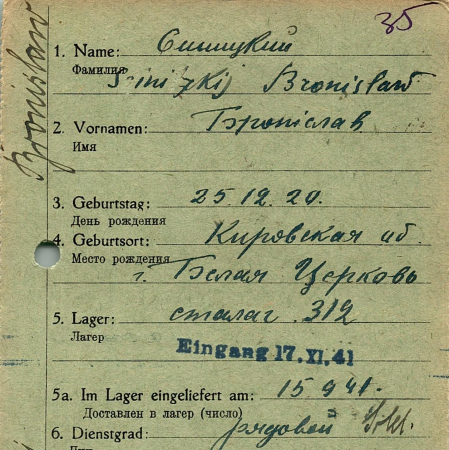 35
Bronislaw
1. Name: Синицкий
Фамилия Sinitzkij Bronislaw
2. Vornamen: Броніслав
Имя
3. Geburtstag: 25.12.20.
День рождения
4. Geburtsort: Кировская об
Место рождения г. Белая Церковь
5. Lager: сталаг 312
Лагерь
Eingang 17. XI. 41
5a. Im Lager eingeliefert am: 15 9 41.
Доставлен в лагерь (число)
6. Dienstgrad: рядовой Sold.